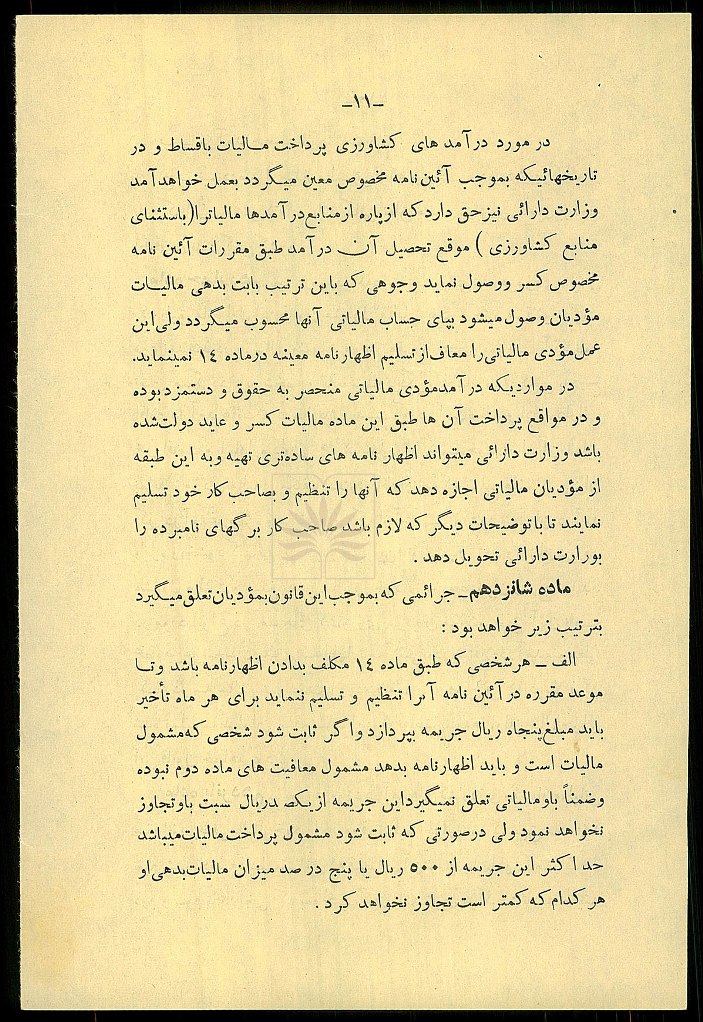 -۱۱-
در مورد درآمد های کشاورزی پرداخت مالیات باقساط و در
تاریخهائیکه بموجب آئین نامه مخصوص معین میگردد بعمل خواهدآمد
وزارت دارائی نیز حق دارد که از پاره از منابع درآمدها مالیاترا (باستثنای
منابع کشاورزی ) موقع تحصیل آن درآمد طبق مقررات آئین نامه
مخصوص کسر ووصول نماید وجوهی که باین ترتیب بابت بدهی مالیات
مؤدیان وصول میشود بپای حساب مالیاتی آنها محسوب میگردد ولی این
عمل مؤدی مالیاتی را معاف از تسلیم اظهارنامه معینه درماده ۱۴ نمینماید.
در مواردیکه درآمدمؤدی مالیاتی منحصر به حقوق و دستمزد بوده
و در مواقع پرداخت آن ها طبق این ماده مالیات کسر و عاید دولت شده
باشد وزارت دارائی میتواند اظهار نامه های ساده‌تری تهیه وبه این طبقه
از مؤدیان مالیاتی اجازه دهد که آنها را تنظیم و بصاحب کار خود تسلیم
نمایند تا با توضیحات دیگر که لازم باشد صاحب کار برگهای نامبرده را
بورارت دارائی تحویل دهد .
ماده شانزدهم- جرائمی که بموجب این قانون بمؤدیان تعلق میگیرد
بترتیب زیر خواهد بود :
الف - هر شخصی که طبق ماده ۱۴ مکلف بدادن اظهارنامه باشد وتا
موعد مقرره در آئین نامه آنرا تنظیم و تسلیم ننماید برای هر ماه تأخیر
باید مبلغ پنجاه ریال جریمه بپردازد واگر ثابت شود شخصی که مشمول
مالیات است و باید اظهارنامه بدهد مشمول معافیت های ماده دوم نبوده
وضمناً باو مالیاتی تعلق نمیگیرد این جریمه از یکصد ریال سبت باو تجاوز
نخواهد نمود ولی درصورتی که ثابت شود مشمول پرداخت مالیات میباشد
حداکثر این جریمه از ۵۰۰ ریال یا پنج در صد میزان مالیات بدهی او
هر کدام که کمتر است تجاوز نخواهد کرد .